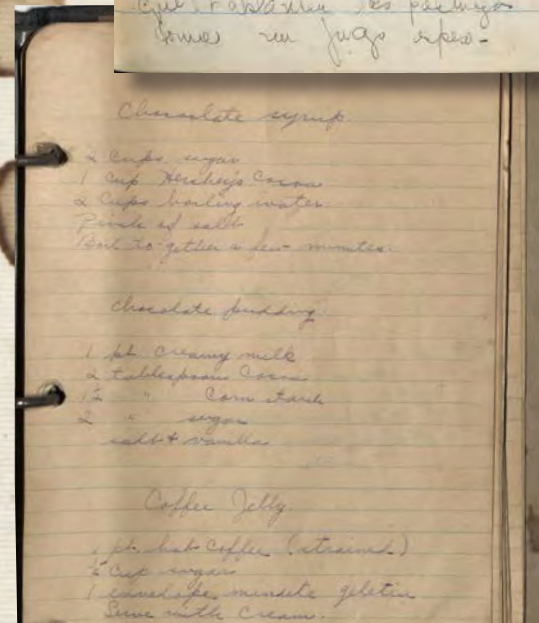 como un jugo
Chocolate syrup
2 cups sugar
1 cup Hershey's Cocoa
2 cups boiling water
Pinch of salt
Boil together a few minutes.
Chocolate pudding
1 pt. creamy milk
2 tablespoons Cocoa
1½ " Corn starch
2 " sugar
salt + vanilla
Coffee Jelly.
1 pt. hot coffee (strained)
½ cup sugar
1 envelope minute geletin
Serve with Cream.